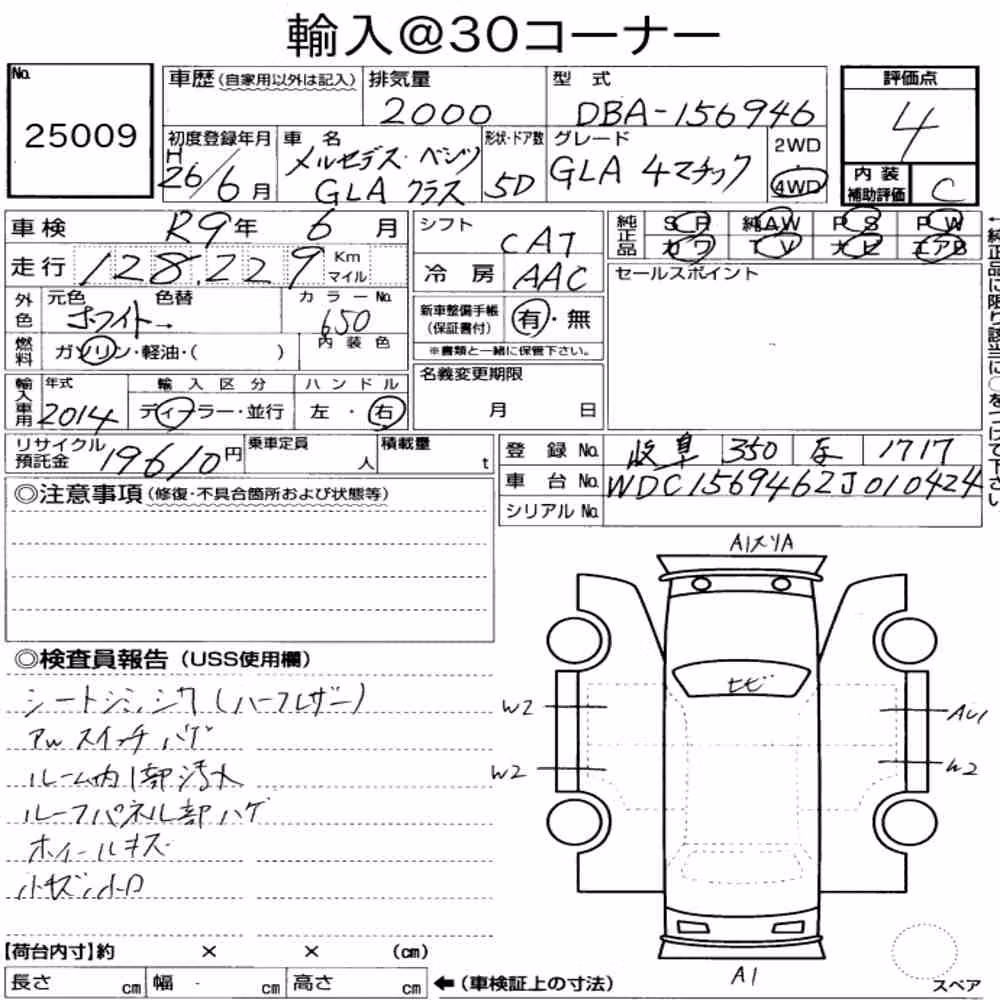 輸入@30コーナー
No. 25009
車歴(自家用以外は記入) 排気量 2000 型式 DBA-156946
評価点 4
初度登録年月 H26/6月 車名 メルセデス・ベンツ GLAクラス 形状・ドア数 5D グレード GLA 4マチック 2WD・4WD
内装補助評価 C
車検 R9年 6月 シフト CAT
純正品 SR 純AW PS PW
カワ TV ナビ エアB
走行 128,229 Km マイル
冷房 AAC
セールスポイント
外色 元色 ホワイト→ 色替 カラーNo. 650
新車整備手帳(保証書付) 有・無
※書類と一緒に保管下さい。
燃料 ガソリン・軽油・( ) 内装色
名義変更期限 月 日
輸入車用 年式 2014 輸入区分 ディーラー・並行 ハンドル 左・右
リサイクル預託金 19610円 乗車定員 人 積載量 t
登録No. 岐阜 350 1717
車台No. WDC1569462J010424
シリアルNo.
◎注意事項(修復・不具合箇所および状態等)
◎検査員報告(USS使用欄)
シートシミ、シワ(ハーフレザー)
AW スイッチハゲ
ルーム内1部汚れ
ルーフパネル部ハゲ
ホイールキズ
小キズ小凹
A1スリA
トビ
W2
AU1
W2
W2
A1
スペア
【荷台内寸】約 × × (cm)
長さ cm 幅 cm 高さ cm ←(車検証上の寸法)
←純正品に限り該当に○をつけて下さい。